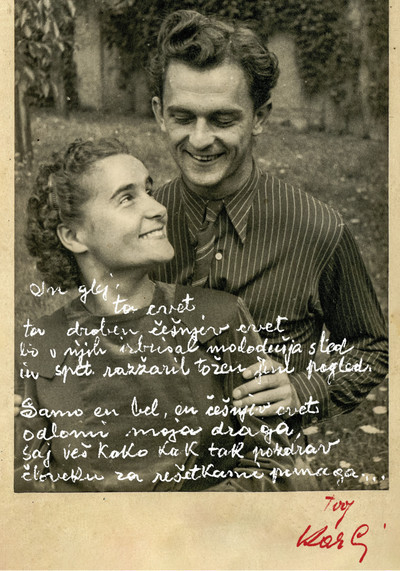 In glej!
ta cvet
ta droben češnjev cvet
bo v njih izbrisal malodušja sled
in spet razžaril tožen jim pogled.
Samo en bel, en češnjev cvet
odlomi moja draga,
saj veš kako tak tak pozdrav
človeku za rešetkami pomaga...
Tvoj
Karlj